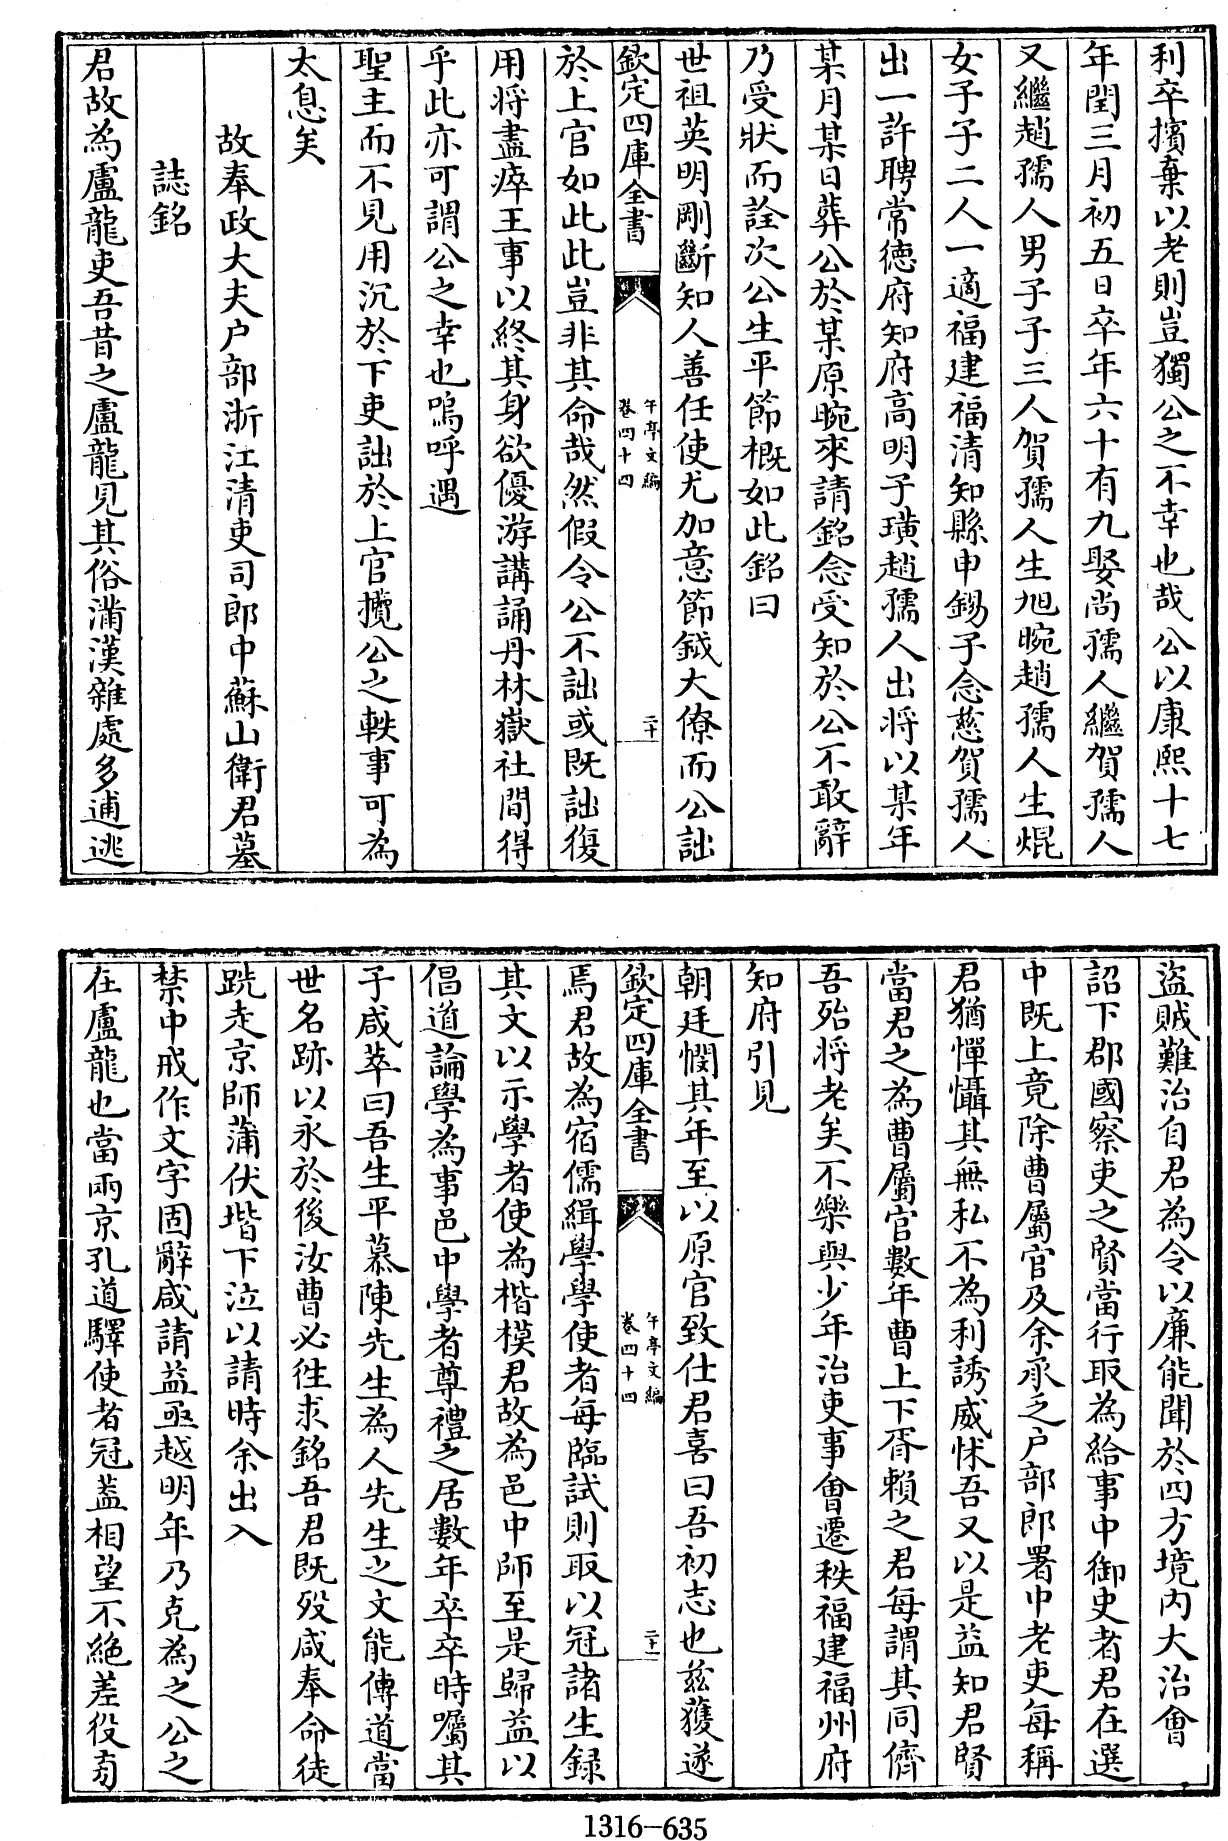 利卒擯棄以老則豈獨公之不幸也哉公以康熙十七
年閏三月初五日卒年六十有九娶尚孺人繼賀孺人
又繼趙孺人男子子三人賀孺人生旭晼趙孺人生焜
女子子二人一適福建福清知縣申錫子念慈賀孺人
出一許聘常徳府知府髙明子璜趙孺人出将以某年
某月某日葬公於某原晼來請銘念受知於公不敢辭
乃受狀而詮次公生平節概如此銘曰
世祖英明剛斷知人善任使尤加意節鉞大僚而公詘
欽定四庫全書
午亭文編
卷四十四
二十
於上官如此此豈非其命哉然假令公不詘或既詘復
用将盡瘁王事以終其身欲優游講誦丹林嶽社間得
乎此亦可謂公之幸也嗚呼遇
聖主而不見用沉於下吏詘於上官攬公之軼事可為
太息矣
故奉政大夫户部浙江清吏司郎中蘇山衛君墓
誌銘
君故為盧龍吏吾昔之盧龍見其俗滿漢雜處多逋逃
盜賊難治自君為令以廉能聞於四方境内大治會
詔下郡國察吏之賢當行取為給事中御史者君在選
中既上竟除曹屬官及余承乏户部郎署中老吏每稱
君猶憚懾其無私不為利誘威怵吾又以是益知君賢
當君之為曹屬官數年曹上下胥賴之君每謂其同儕
吾殆将老矣不樂與少年治吏事會遷秩福建福州府
知府引見
朝廷憫其年至以原官致仕君喜曰吾初志也兹獲遂
欽定四庫全書
午亭文編
卷四十四
二十一
焉君故為宿儒緝學學使者每臨試則取以冠諸生録
其文以示學者使為楷模君故為邑中師至是歸益以
倡道論學為事邑中學者尊禮之居數年卒卒時嘱其
子咸萃曰吾生平慕陳先生為人先生之文能傳道當
世名跡以永於後汝曹必徃求銘吾君既殁咸奉命徒
跣走京師蒲伏堦下泣以請時余出入
禁中戒作文字固辭咸請益亟越明年乃克為之公之
在盧龍也當兩京孔道驛使者冠葢相望不絶差役旁
1316—635